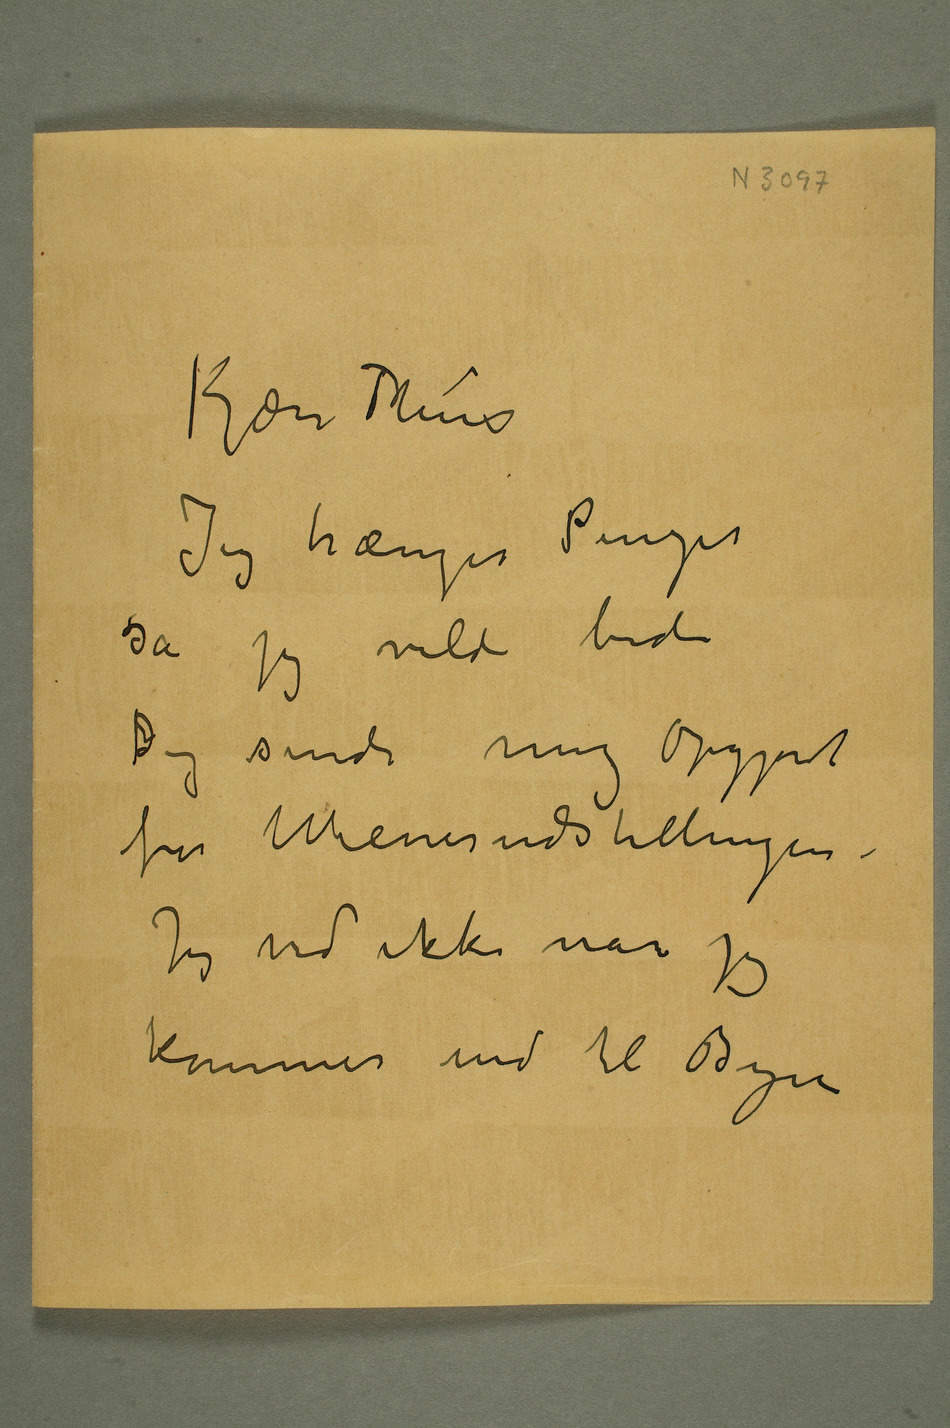 N 3097
Kjære Thiis
Jeg trænger Penger
sa jeg vilde bede
Dig sende mig Opgjøret
for Wienerudstillingen –
Jeg ved ikke naar jeg
kommer ind til Byen